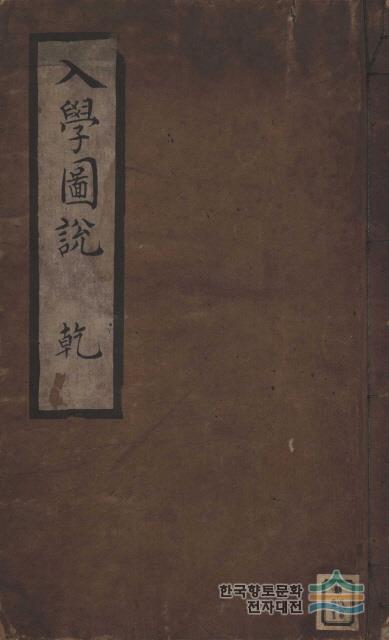 入學圖說 乾
한국향토문화
전자대전